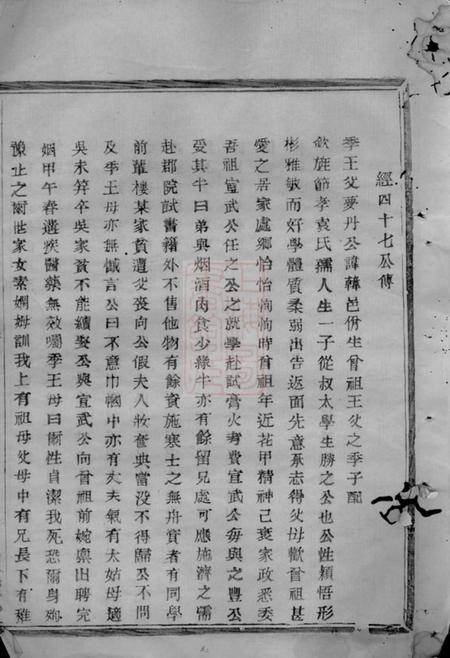 經四十七公傳
季王父夢丹公諱韓邑庠生曾祖王父之季子配
欽旌節孝袁氏孺人生一子從叔太學生勝之公也公性穎悟形
彬雅敏而好學體質柔弱出告返面先意承志得父母歡曾祖甚
愛之居家處鄉怡怡恂恂時曾祖年近花甲精神已衰家政悉委
吾祖宣武公任之公之就學赴試膏火考費宣武公每與之豐公
受其半曰弟與烟酒肉食少緣半亦有餘留兄處可應施濟之需
赴郡院試書籍外不售他物有餘資施寒士之無舟資者有同學
前輩樓某家貧遭父喪向公假夫人妝奩典當沒不得歸公不問
及季王母亦無慽言公曰不意巾幗中亦有丈夫氣有太姑母適
吳未筓卒吳家貧不能續娶公與宣武公向曾祖前婉稟出聘完
姻甲午春遘疾醫藥無效囑季王母曰爾性自潔我死恐爾身殉
豫止之爾世家女素嫻姆訓我上有祖母父母中有兄長下有稚